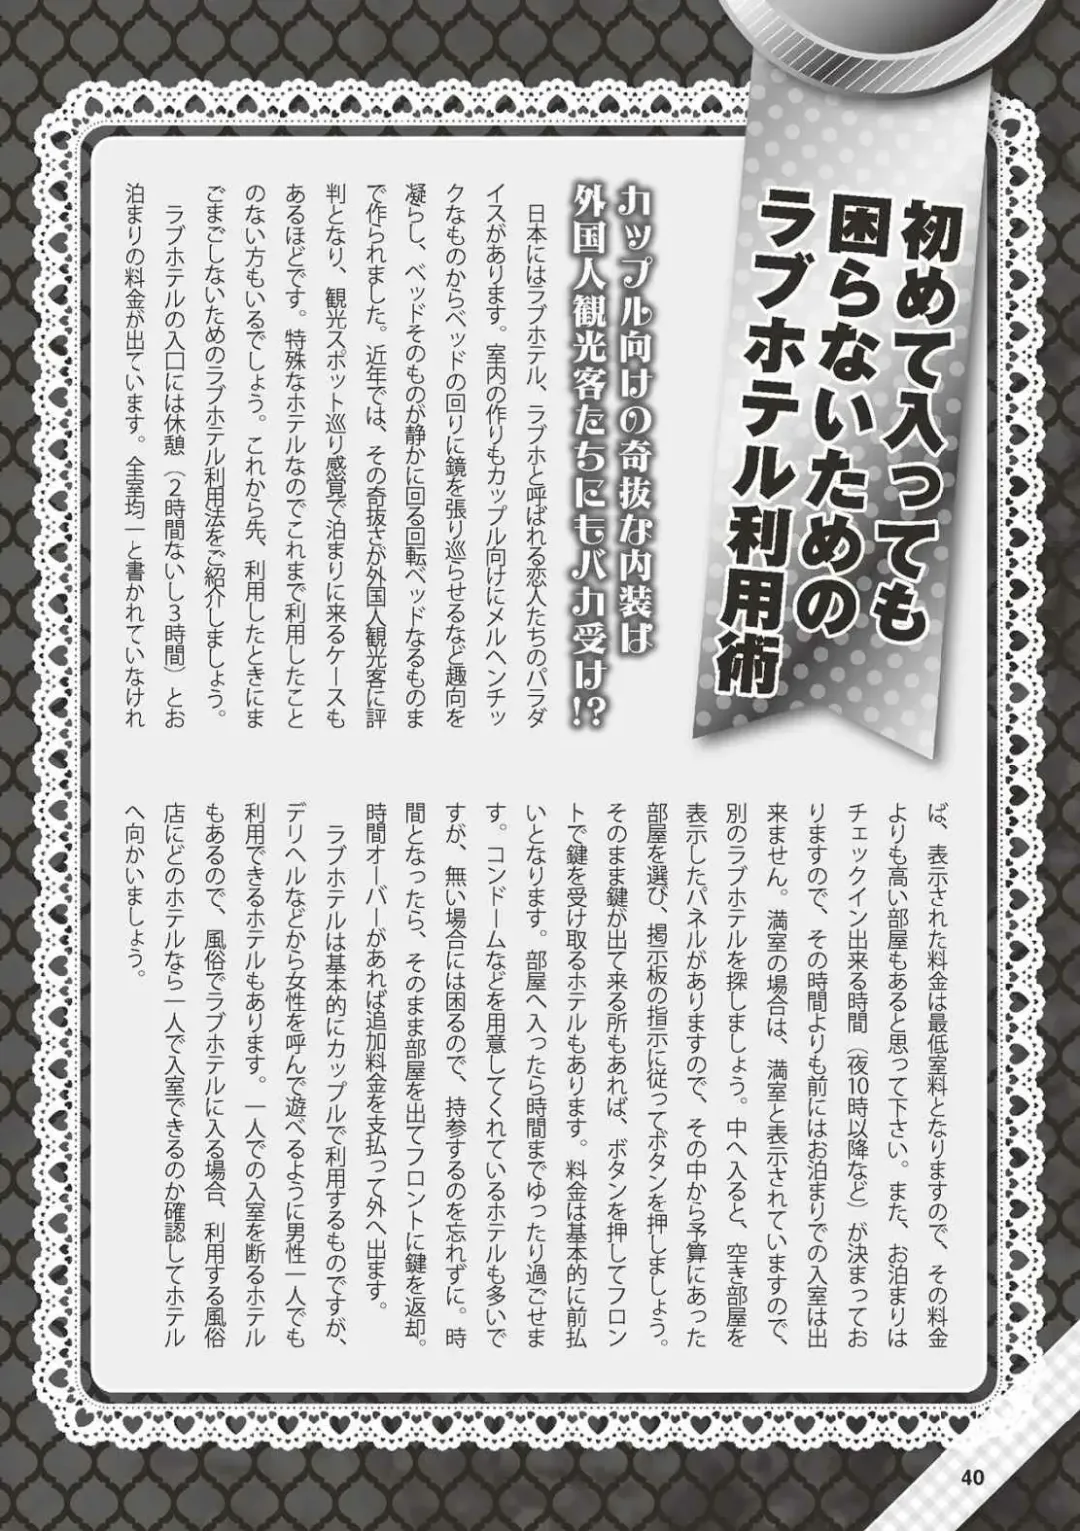 初めて入っても
困らないための
ラブホテル利用術
カップル向けの奇抜な内装は
外国人観光客たちにもバカ受け!?
　日本にはラブホテル、ラブホと呼ばれる恋人たちのパラダ
イスがあります。室内の作りもカップル向けにメルヘンチッ
クなものからベッドの回りに鏡を張り巡らせるなど趣向を
凝らし、ベッドそのものが静かに回る回転ベッドなるものま
で作られました。近年では、その奇抜さが外国人観光客に評
判となり、観光スポット巡り感覚で泊まりに来るケースも
あるほどです。特殊なホテルなのでこれまで利用したこと
のない方もいるでしょう。これから先、利用したときにま
ごまごしないためのラブホテル利用法をご紹介しましょう。
　ラブホテルの入口には休憩（2時間ないし3時間）とお
泊まりの料金が出ています。全室均一と書かれていなけれ
ば、表示された料金は最低室料となりますので、その料金
よりも高い部屋もあると思って下さい。また、お泊まりは
チェックイン出来る時間（夜10時以降など）が決まってお
りますので、その時間よりも前にはお泊まりでの入室は出
来ません。満室の場合は、満室と表示されていますので、
別のラブホテルを探しましょう。中へ入ると、空き部屋を
表示したパネルがありますので、その中から予算にあった
部屋を選び、掲示板の指示に従ってボタンを押しましょう。
そのまま鍵が出て来る所もあれば、ボタンを押してフロン
トで鍵を受け取るホテルもあります。料金は基本的に前払
いとなります。部屋へ入ったら時間までゆったり過ごせま
す。コンドームなどを用意してくれているホテルも多いで
すが、無い場合には困るので、持参するのを忘れずに。時
間となったら、そのまま部屋を出てフロントに鍵を返却。
時間オーバーがあれば追加料金を支払って外へ出ます。
　ラブホテルは基本的にカップルで利用するものですが、
デリヘルなどから女性を呼んで遊べるように男性一人でも
利用できるホテルもあります。一人での入室を断るホテル
もあるので、風俗でラブホテルに入る場合、利用する風俗
店にどのホテルなら一人で入室できるのか確認してホテル
へ向かいましょう。
40